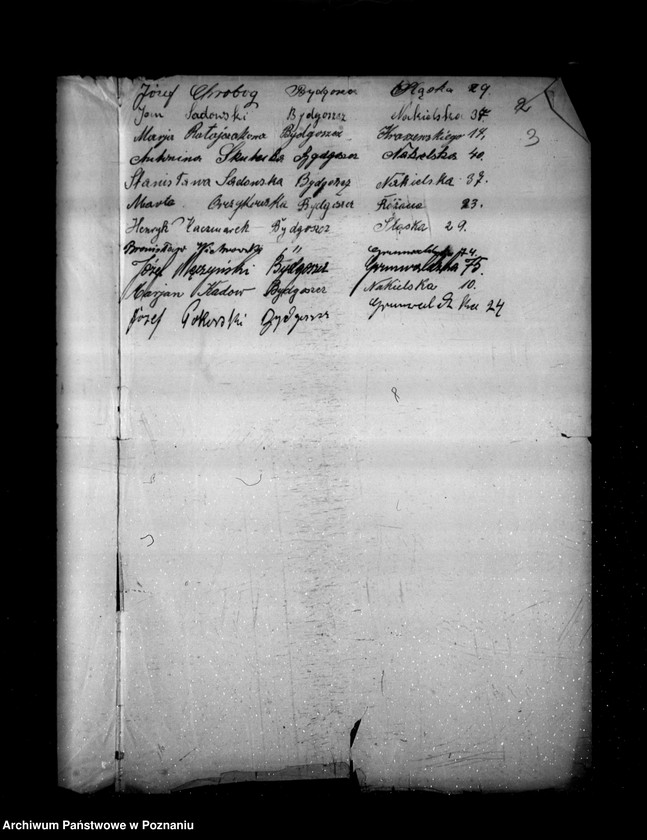 Józef Chrobog Bydgoszcz Śląska 29.
2
Jan Sadowski Bydgoszcz Nakielska 37.
3
Marja Ratajczakowa Bydgoszcz Kraszewskiego 14.
Antonina Bydgoszcz Nakielska 40.
Stanisława Sadowska Bydgoszcz Nakielska 37.
Bydgoszcz Różana 23.
Henryk Kaczmarek Bydgoszcz Śląska 29.
Bronisław " Grunwaldzka 74.
Józef Bydgoszcz Grunwaldzka 75.
Marjan Bydgoszcz Nakielska 10.
Józef Bydgoszcz Grunwaldzka 24
Archiwum Państwowe w Poznaniu